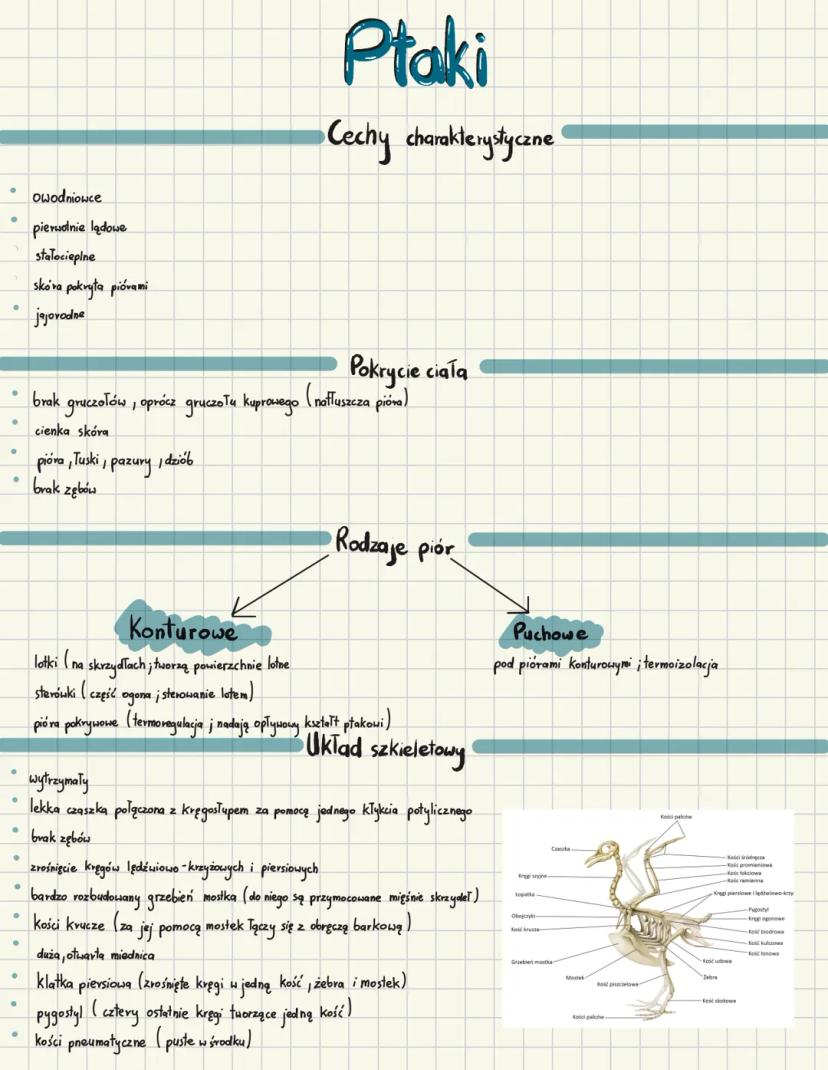 Ptaki
Cechy charakterystyczne
owodniowce
pierwotnie lądowe
stałocieplne
skóra pokryta piórami
jajorodne
Pokrycie ciała
brak gruczołów, oprócz gruczołu kuprowego (natłuszcza pióra)
cienka skóra
pióra, łuski, pazury, dziób
brak zębów
Rodzaje piór
Konturowe
lotki (na skrzydłach; tworzą powierzchnie lotne
sterówki (część ogona; sterowanie lotem)
pióra pokrywowe (termoregulacja; nadają opływowy kształt ptakowi)
Puchowe
pod piórami konturowymi; termoizolacja
Układ szkieletowy
wytrzymały
lekka czaszka połączona z kręgosłupem za pomocą jednego kłykcia potylicznego
brak zębów
zrośnięcie kręgów lędźwiowo-krzyżowych i piersiowych
bardzo rozbudowany grzebień mostka (do niego są przymocowane mięśnie skrzydeł)
kości krucze (za jej pomocą mostek łączy się z obręczą barkową)
duża, otwarta miednica
klatka piersiowa (zrośnięte kręgi w jedną kość, żebra i mostek)
pygostyl (cztery ostatnie kręgi tworzące jedną kość)
kości pneumatyczne (puste w środku)
Kości palców
Czaszka
Kręgi szyjne
Łopatka
Obojczyki
Kość krucza
Grzebień mostka
Mostek
Kość piszczelowa
Kości palców
Kości śródręcza
Kość promieniowa
Kość łokciowa
Kość ramienna
Kręgi piersiowe i lędźwiowo-krzy
Pygostyl
Kręgi ogonowe
Kość biodrowa
Kość kulszowa
Kość łonowa
Kość udowa
Żebra
Kość skokowa